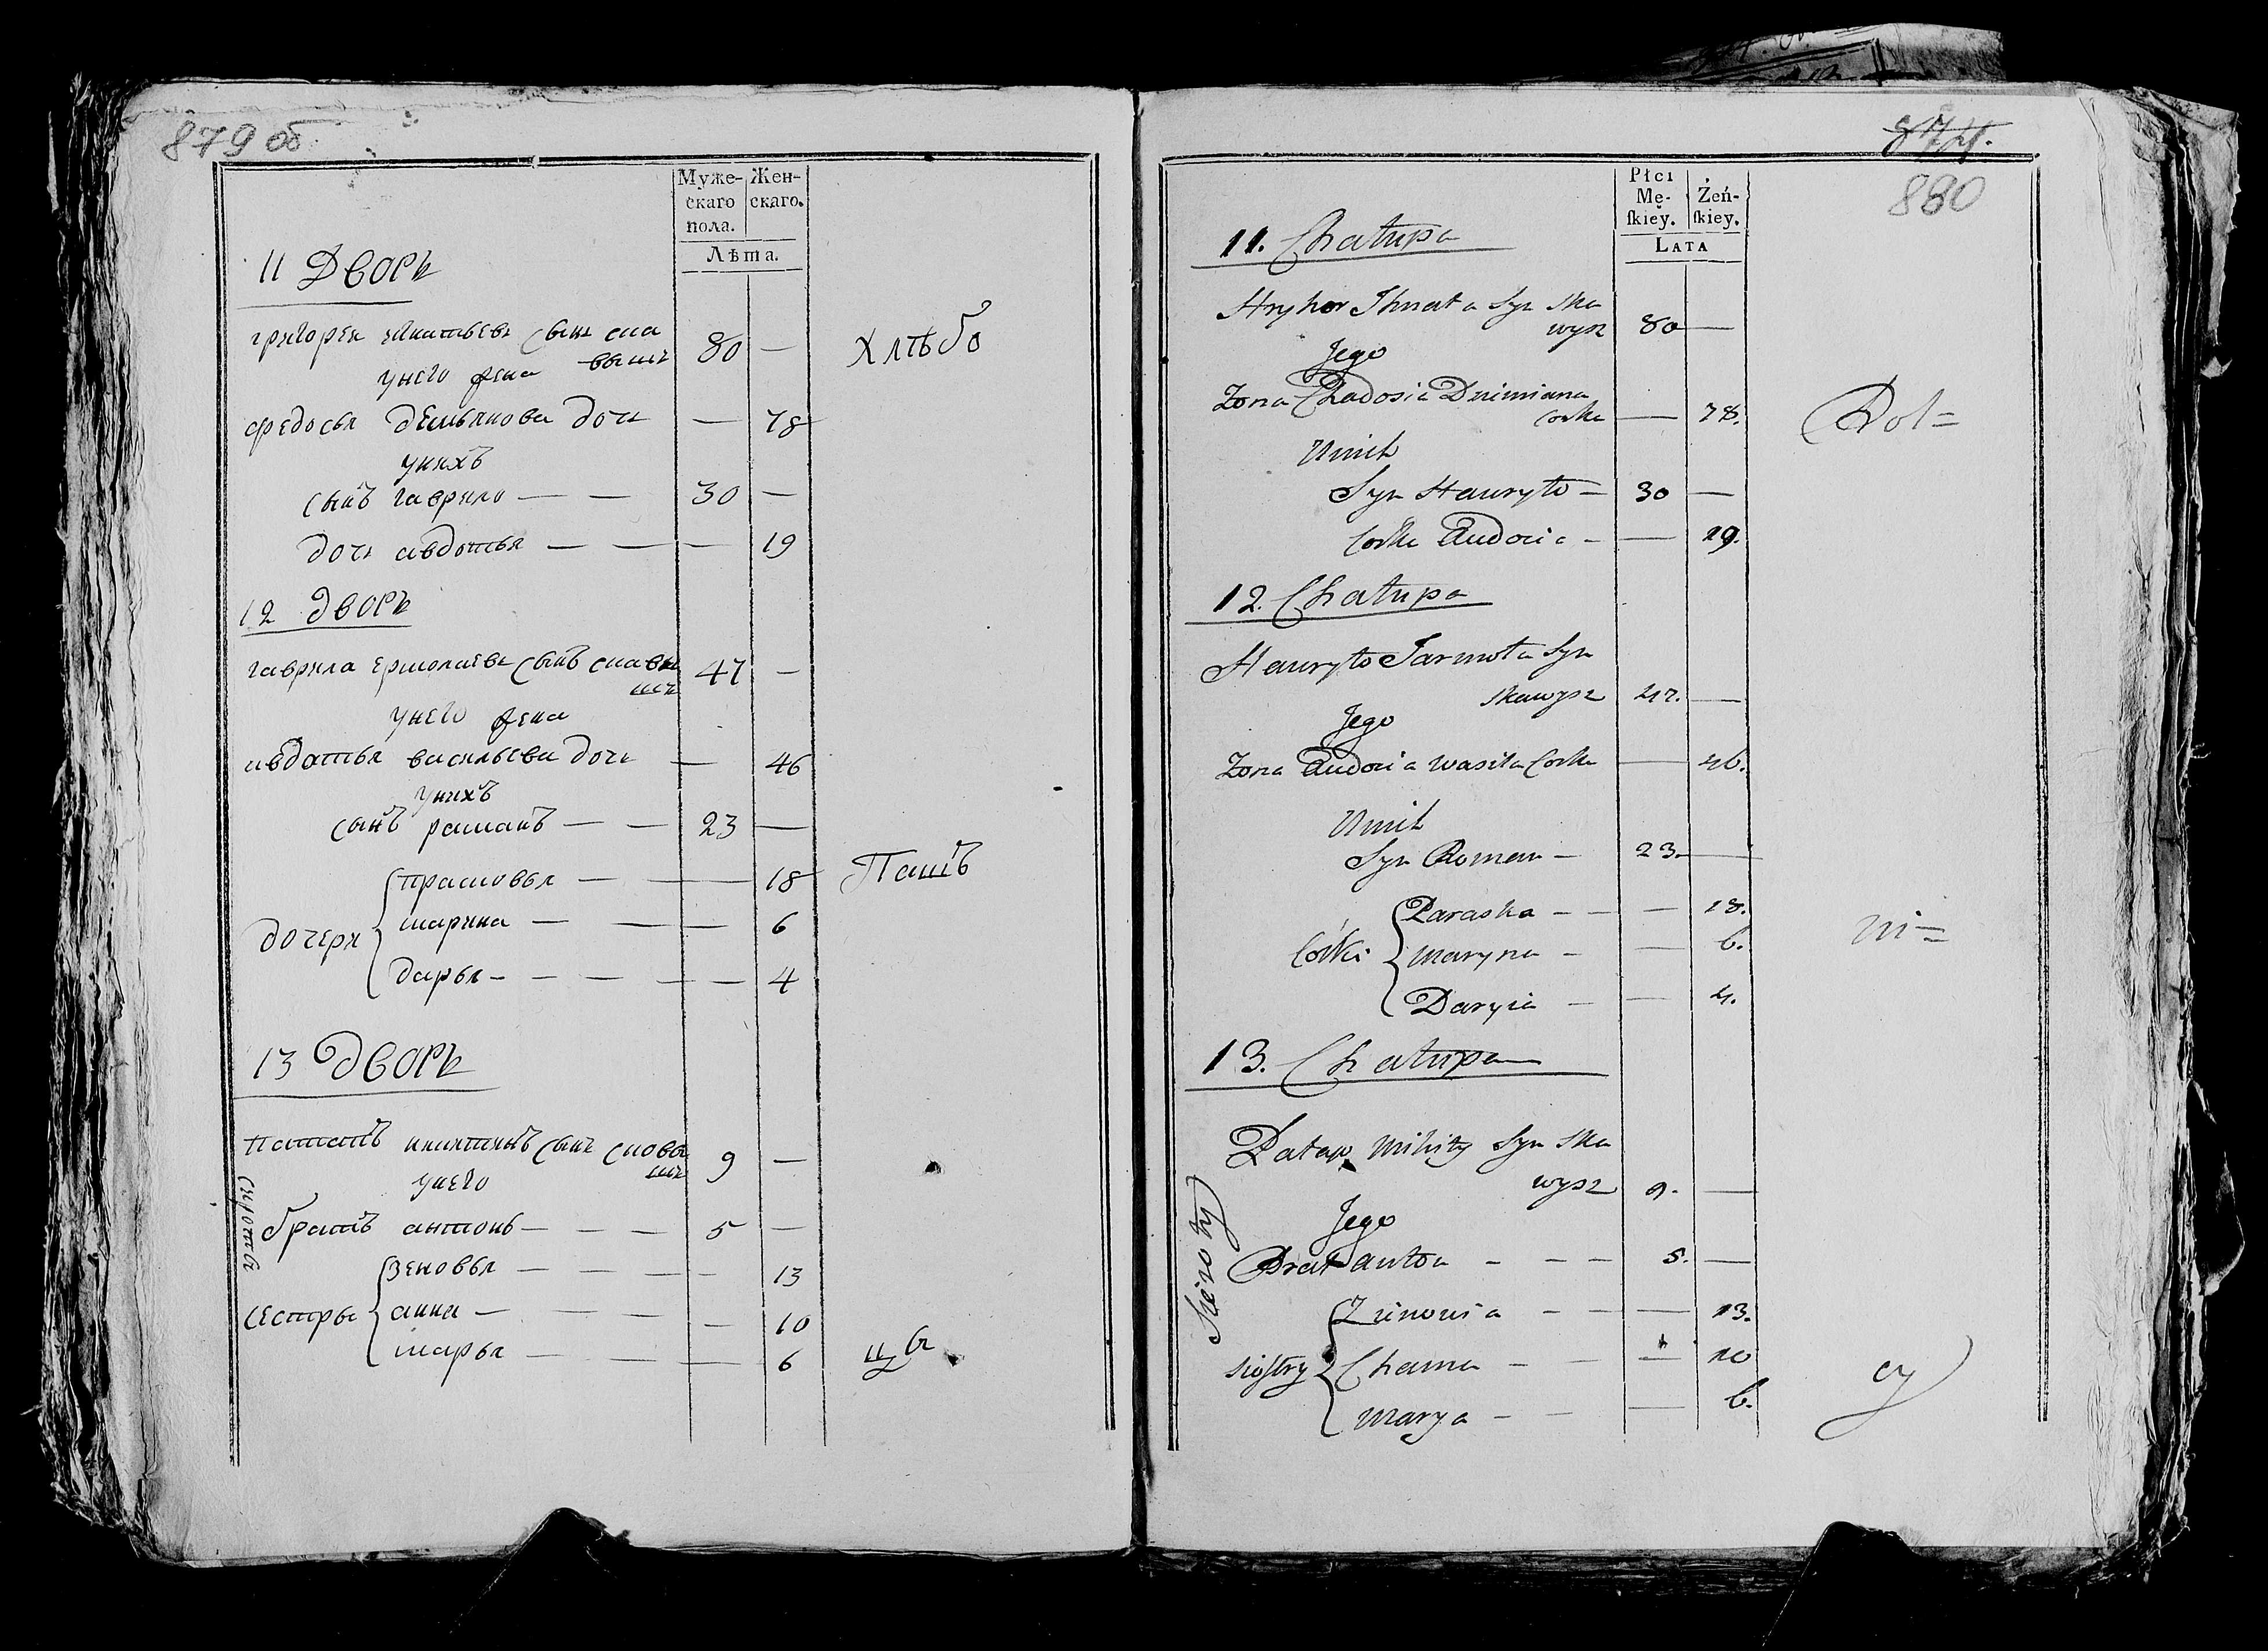 879 об
Муже-
скаго
пола.
Жен-
скаго.
Лѣта.
11 Дворъ
григорей игнатьевъ сынъ ска
вышъ 80 —
Хлѣбо
у него жена
федосья демьянова дочь — 78
у нихъ
сынъ гаврило — — 30 —
дочь авдотья — — — 19
12 дворъ
гаврила ермолаевъ сынъ скавы
шъ 47 —
у него жена
авдотья васильева дочь — 46
у нихъ
сынъ раманъ — — 23 —
дочери
прасковья — — — 18
Пашъ
марина — — — 6
дарья — — — — — 4
13 Дворъ
патапъ никитинъ сынъ сковы
шъ 9 —
у него
сироты
братъ антонъ — — — 5 —
сестры
зеновья — — — — — 13
анна — — — — 10
марья — — — — 6
цы
874.
880
Płci
Mę-
ſkiey.
Żeń-
ſkiey.
LATA
11. Chałupa
Hryhor Ihnata Syn Ska
wysz 80 —
Jego
Zona Chadosia Dzimiana
Corka — 78.
Rol=
U nich
Syn Hauryło — 30 —
Corka Audocia — — 19.
12. Chałupa
Hauryło Jarmoła Syn
Skawysz 47. —
Jego
Zona Audocia Wasila Corka — 46.
U nich
Syn Roman — 23. —
Corki
Paraska — — — 18.
ni=
Maryna — — 6.
Daryia — — 4.
13. Chałupa
Patap Mikity Syn Ska
wysz 9. —
Sieroty
Jego
Brat Anton — — — 5. —
Siostry
Zinowia — — — 13.
Channa — — — 10
Marya — — — 6.
cy